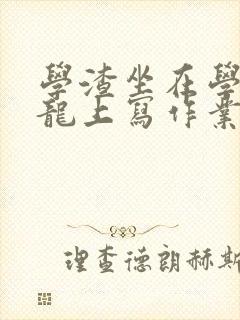 學渣坐在學
龍上寫作業
理查德朗赫斯